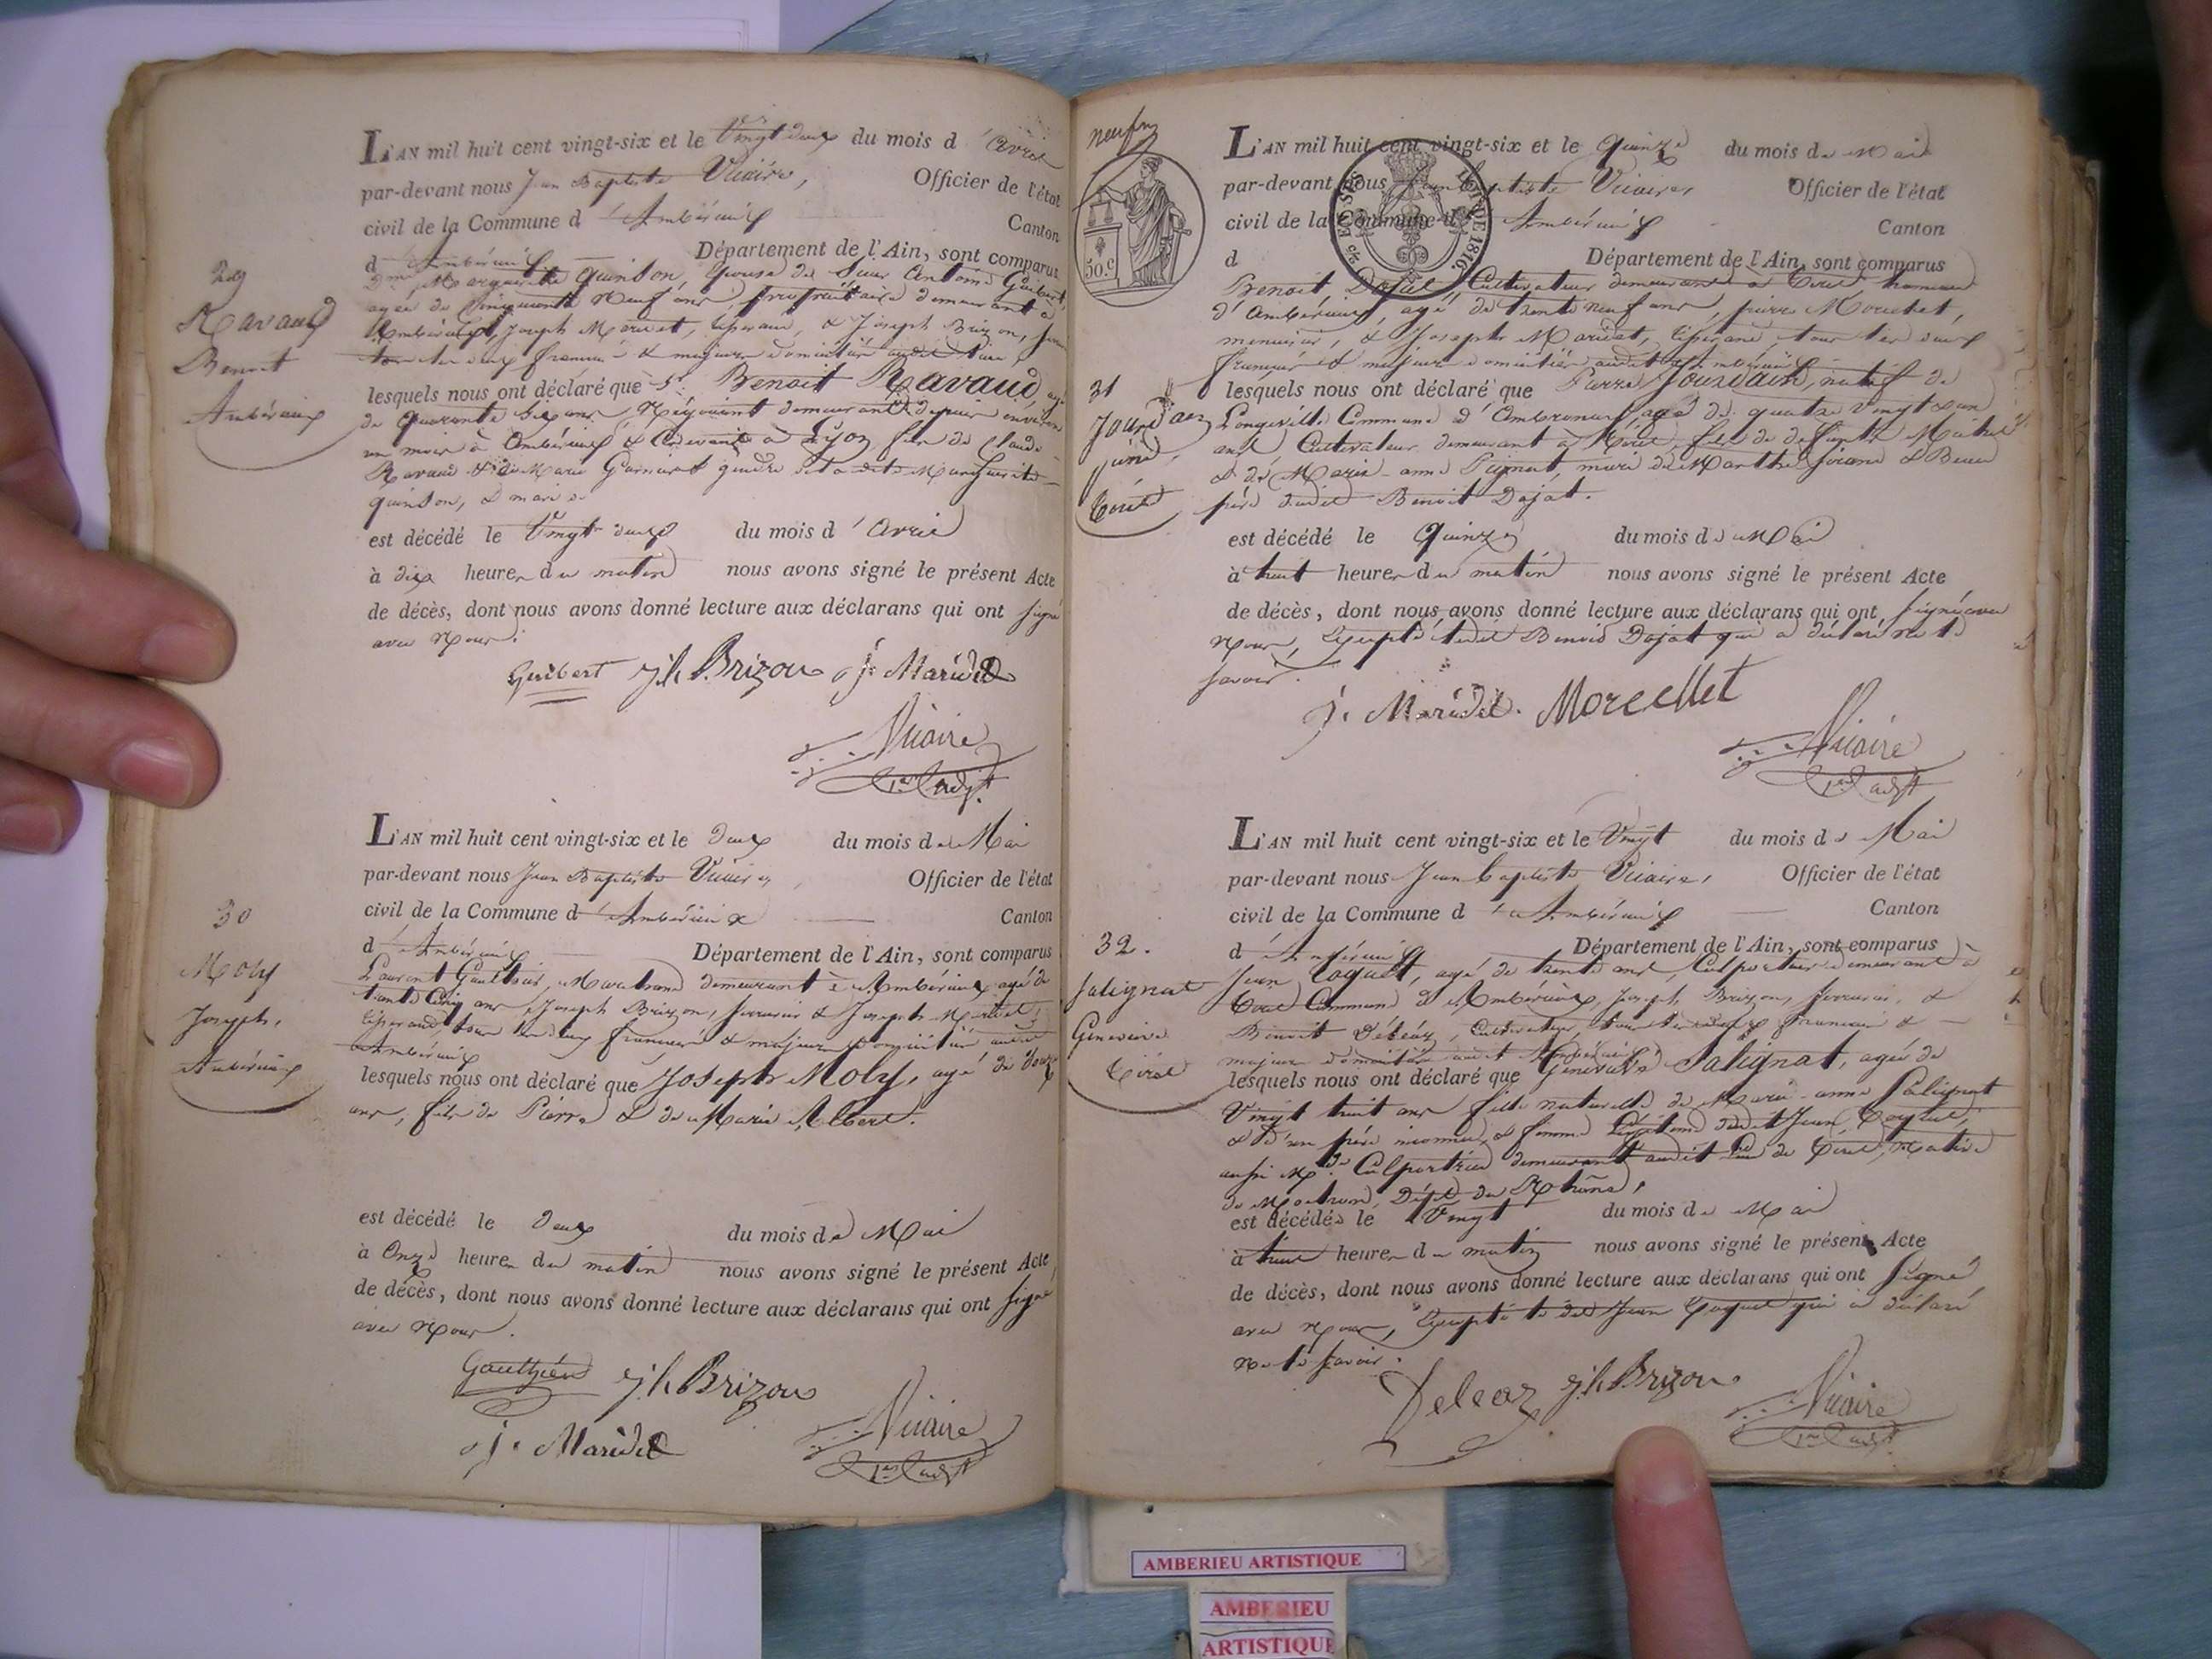 L'AN mil huit cent vingt-six et le Vingt deux du mois d'avril
par-devant nous Jean Baptiste Vicaire, Officier de l'état
civil de la Commune d'Ambérieux Canton
d'Ambérieux Département de l'Ain, sont comparus
Marguerite Quinson, épouse de Sieur Antoine Guibert,
agée de cinquante neuf ans, propriétaire demeurant à
Ambérieux, Joseph Maridet, & Joseph Brizon,
tous les deux français & majeurs domiciliés audit lieu
29
Ravaud
Benoit
Ambérieux
lesquels nous ont déclaré que Sr. Benoit Ravaud, agé
de quarante six ans, Négociant demeurant depuis environ
un mois à Ambérieux & à Lyon fils de Claude
Ravaud & de Marie Garnier & gendre de ladite Marguerite
Quinson, & mari de
est décédé le Vingt deux du mois d'avril
à dix heures du matin nous avons signé le présent Acte
de décès, dont nous avons donné lecture aux déclarans qui ont signé
avec Nous.
Guibert jh Brizon j. Maridet
Vicaire
1er adjt
L'AN mil huit cent vingt-six et le deux du mois de Mai
par-devant nous Jean Baptiste Vicaire, Officier de l'état
civil de la Commune d'Ambérieux Canton
d'Ambérieux Département de l'Ain, sont comparus
Laurent Gauthier, Marchand demeurant à Ambérieux agé de
trente cinq ans, Joseph Brizon, serrurier & Joseph Maridet,
tous les deux français & majeurs domiciliés audit
Ambérieux
30
Moly
Joseph,
Ambérieux
lesquels nous ont déclaré que Joseph Moly, agé de douze
ans, fils de Pierre & de Marie Albert.
est décédé le deux du mois de Mai
à Onze heures du matin nous avons signé le présent Acte
de décès, dont nous avons donné lecture aux déclarans qui ont signé
avec Nous.
Gauthier jh Brizon
j. Maridet Vicaire
1er adjt
50.c
L'AN mil huit cent vingt-six et le Quinze du mois de Mai
par-devant nous Jean Baptiste Vicaire, Officier de l'état
civil de la Commune d'Ambérieux Canton
d Département de l'Ain, sont comparus
Benoit Dojat Cultivateur demeurant à Tiret hameau
d'Ambérieux, agé de trente neuf ans, pierre
menuisier, & Joseph Maridet, tous les deux
français & majeurs domiciliés audit Ambérieux
31
Jourdain
pierre,
Tiret
lesquels nous ont déclaré que Pierre Jourdain, natif de
Longeville Commune d'Ambronay, agé de quatre Vingt un
ans Cultivateur demeurant à Tiret, fils de défunts Michel
& de Marie-anne mari de Marthe & Beau
père dudit Benoit Dojat.
est décédé le Quinze du mois de Mai
à huit heures du matin nous avons signé le présent Acte
de décès, dont nous avons donné lecture aux déclarans qui ont signé avec
Nous, Excepté ledit Benoit Dojat qui a déclaré ne le
savoir.
j. Maridet. Morellet
Vicaire
1er adjt
L'AN mil huit cent vingt-six et le Vingt du mois de Mai
par-devant nous Jean baptiste Vicaire, Officier de l'état
civil de la Commune d'Ambérieux Canton
d'Ambérieux Département de l'Ain, sont comparus
Jean Coquet, agé de trente ans, Colporteur demeurant à
Tiret Commune d'Ambérieux, Joseph Brizon, serrurier, &
Benoit Déléaz, Cultivateur, tous les deux français &
majeurs domiciliés audit Ambérieux
32.
Salignat
Genevieve
Tiret
lesquels nous ont déclaré que Genevieve Salignat, agée de
Vingt huit ans fille naturelle de Marie-anne Salignat
& d'un père inconnu, & femme légitime dudit Jean Coquet,
aussi Mde Colportrice demeurant audit lieu de Tiret, Native
de Dépt du Rhône,
est décédée le Vingt du mois de Mai
à huit heures du matin nous avons signé le présent Acte
de décès, dont nous avons donné lecture aux déclarans qui ont signé
avec Nous, Excepté ledit Jean Coquet qui a déclaré
ne le savoir.
Deleaz jh Brizon Vicaire
1er adjt
AMBERIEU ARTISTIQUE
AMBERIEU
ARTISTIQUE